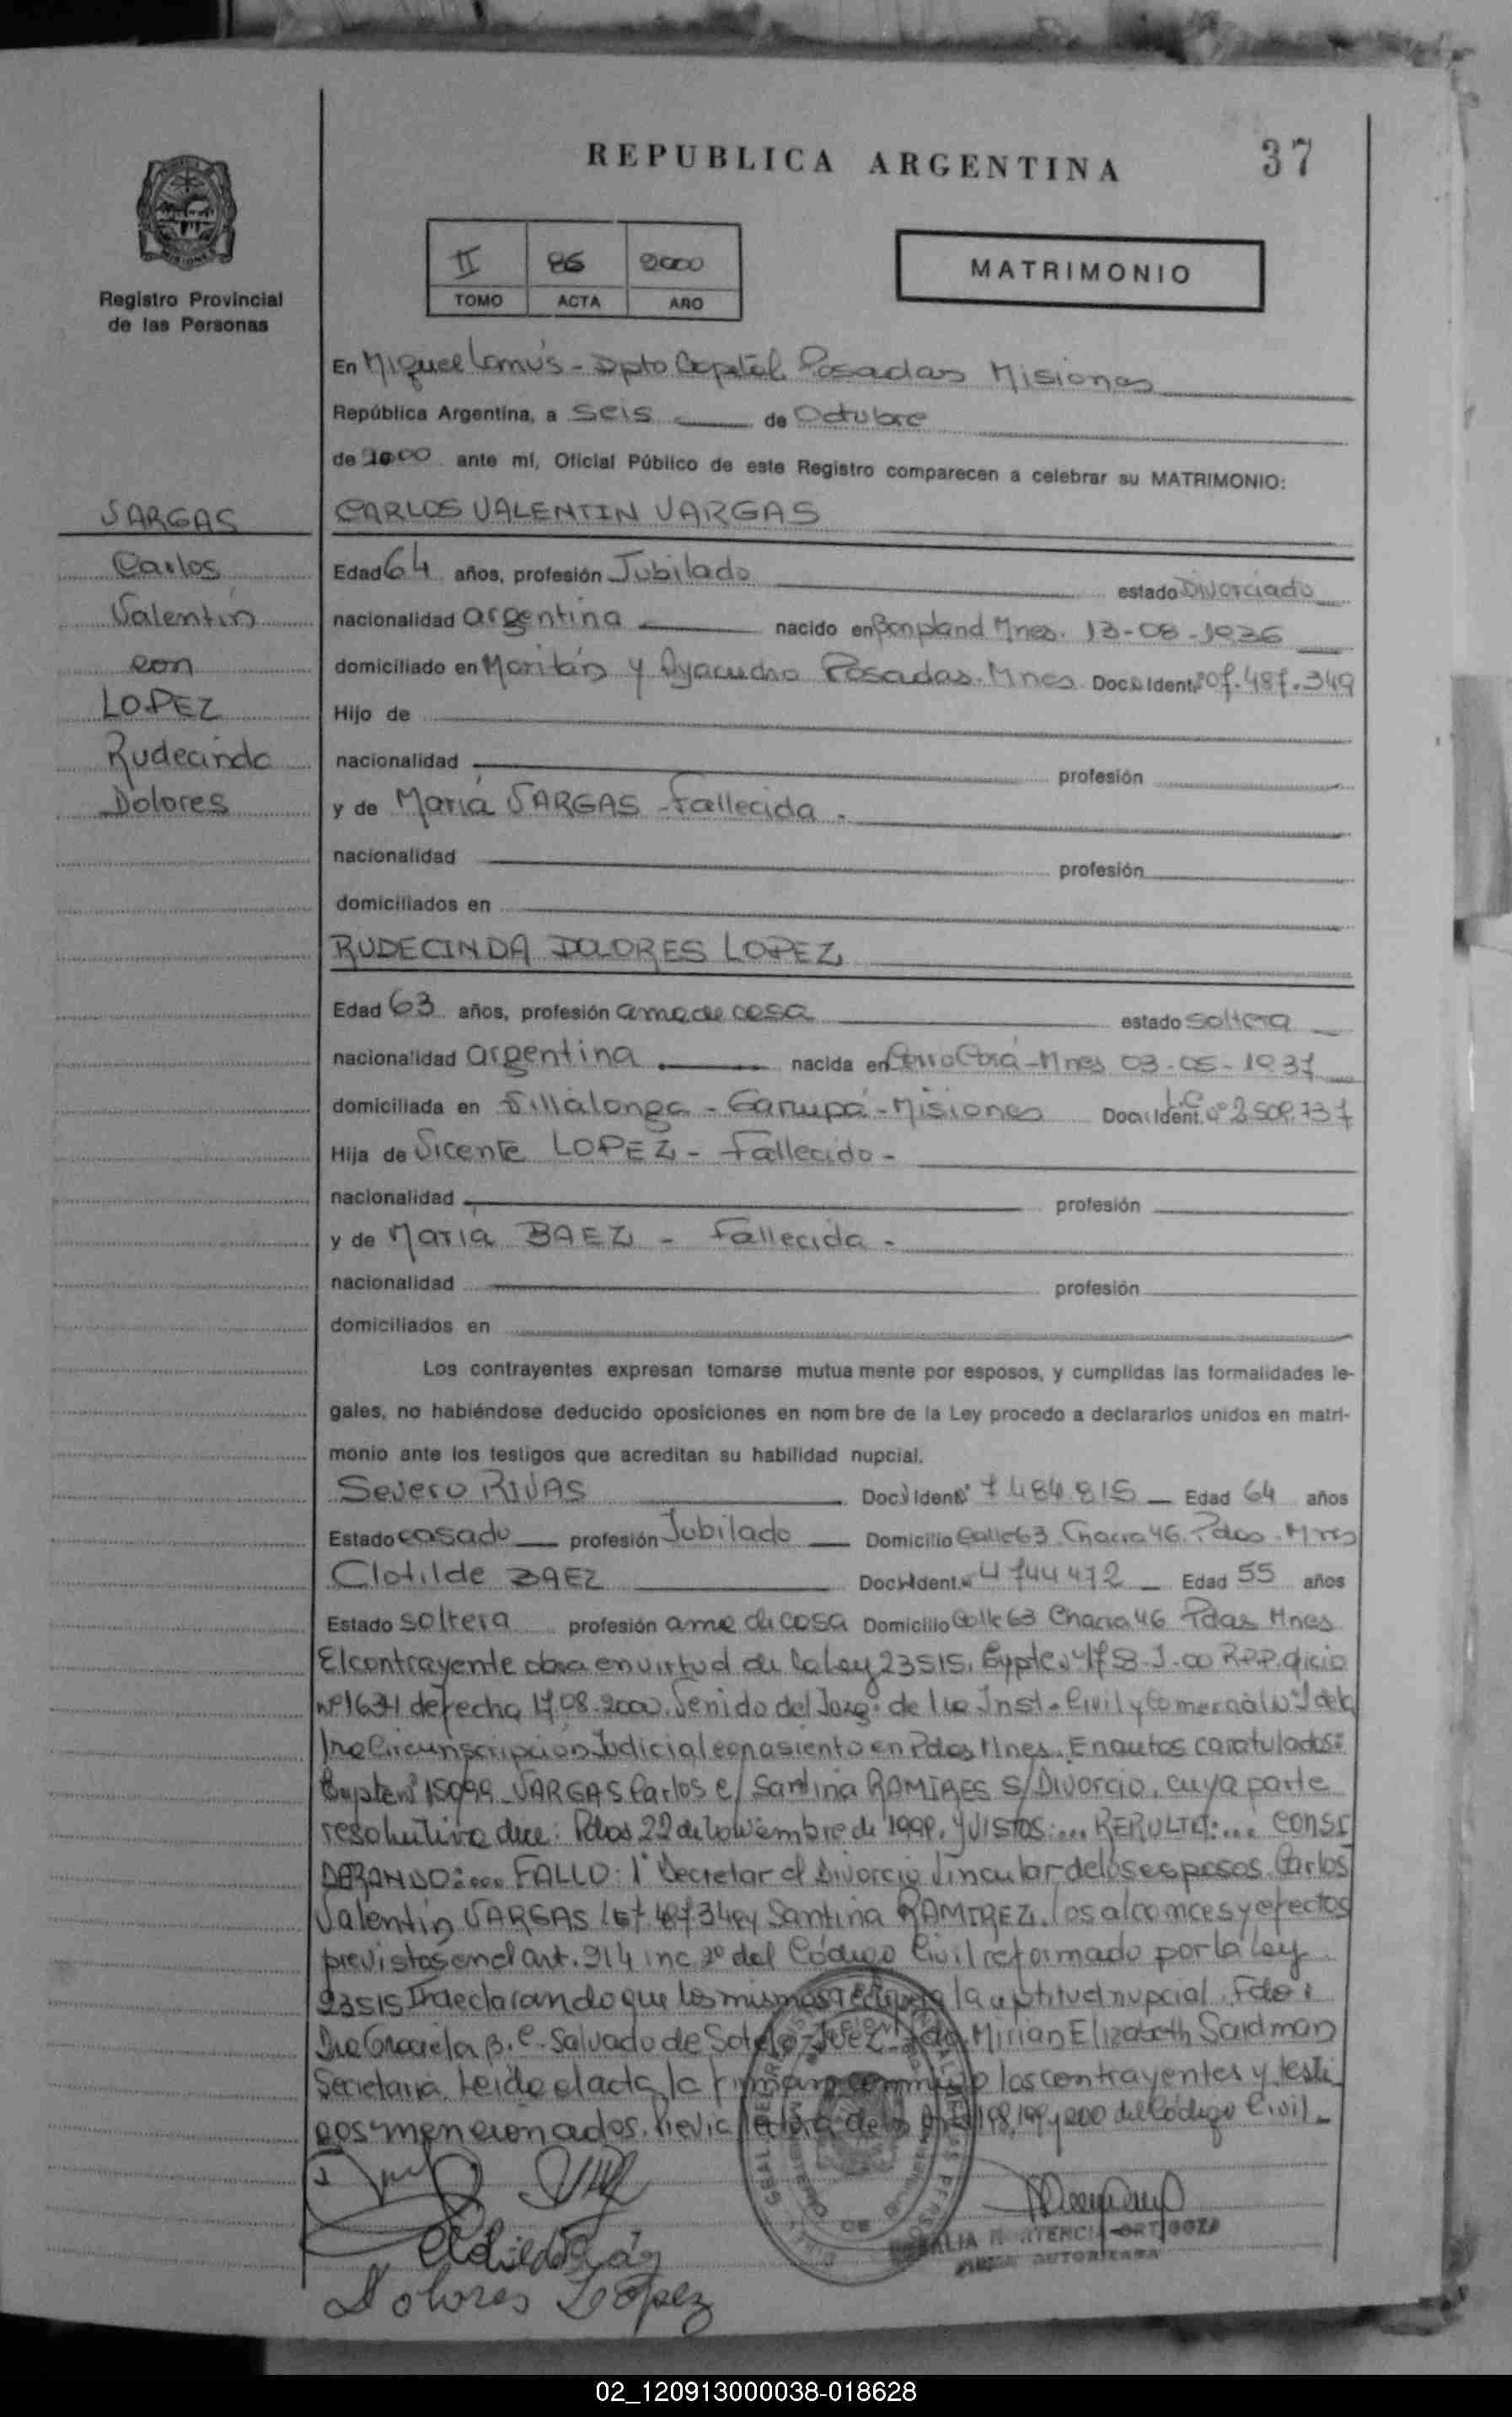 REPUBLICA ARGENTINA
37
Registro Provincial
de las Personas
II 86 2000
TOMO ACTA AÑO
MATRIMONIO
En Miguel Lanús - Dpto Capital Posadas Misiones
República Argentina, a Seis de Octubre
de 2000 ante mí, Oficial Público de este Registro comparecen a celebrar su MATRIMONIO:
VARGAS
Carlos
Valentín
con
LOPEZ
Rudecinda
Dolores
CARLOS VALENTIN VARGAS
Edad 64 años, profesión Jubilado estado Divorciado
nacionalidad argentina nacido en Bonpland Mnes. 13-08-1936
domiciliado en Maritán y Ayacucho Posadas. Mnes Doc. Ident. 07.487.349
Hijo de
nacionalidad profesión
y de María VARGAS - Fallecida -
nacionalidad profesión
domiciliados en
RUDECINDA DOLORES LOPEZ
Edad 63 años, profesión ama de casa estado soltera
nacionalidad argentina nacida en Cerro Corá - Mnes 03-05-1937
domiciliada en Villalonga - Garupá - Misiones Doc. Ident. L.C. Nº 2.509.737
Hija de Vicente LOPEZ - Fallecido -
nacionalidad profesión
y de María BAEZ - Fallecida -
nacionalidad profesión
domiciliados en
Los contrayentes expresan tomarse mutua mente por esposos, y cumplidas las formalidades le-
gales, no habiéndose deducido oposiciones en nom bre de la Ley procedo a declararlos unidos en matri-
monio ante los testigos que acreditan su habilidad nupcial.
Severo RIVAS Doc. Ident. 7.484.815 Edad 64 años
Estado casado profesión Jubilado Domicilio Calle 63 Chacra 46. Pdas - Mnes
Clotilde BAEZ Doc. Ident. 4744472 Edad 55 años
Estado soltera profesión ama de casa Domicilio Calle 63 Chacra 46 Pdas Mnes
El contrayente obra en virtud de la Ley 23515, Expte. R.P.P. oficio
Nº 1634 de fecha 17.08.2000. Venido del Juzg. de 1ra Inst. Civil y Comercial Nº 1 de la
1ra Circunscripción Judicial con asiento en Pdas Mnes. En autos caratulados:
Expte Nº VARGAS Carlos c/ Santina RAMIRES S/Divorcio, cuya parte
resolutiva dice: Pdas 22 de Noviembre de 1999. Y VISTOS:... RERULTA:... CONSI
DERANDO:... FALLO: 1º Decretar el Divorcio Vincular de los esposos Carlos
Valentín VARGAS y Santina RAMIREZ, los alcances y efectos
previstos en el art. 214 inc. 2º del Código Civil reformado por la ley
23515 II declarando que los mismos la aptitud nupcial. Fdo:
Dra Graciela B. C. Salvado de Sotelo - Juez - Fdo. Mirian Elizabeth Saidman
Secretaria. Leída el acta la firman conmigo los contrayentes y testi
gos mencionados. Previa de los Arts 198, 199 y 200 del Código Civil -
Dolores Lopez
ORTIGOZA
AUTORIZADA
02_120913000038-018628